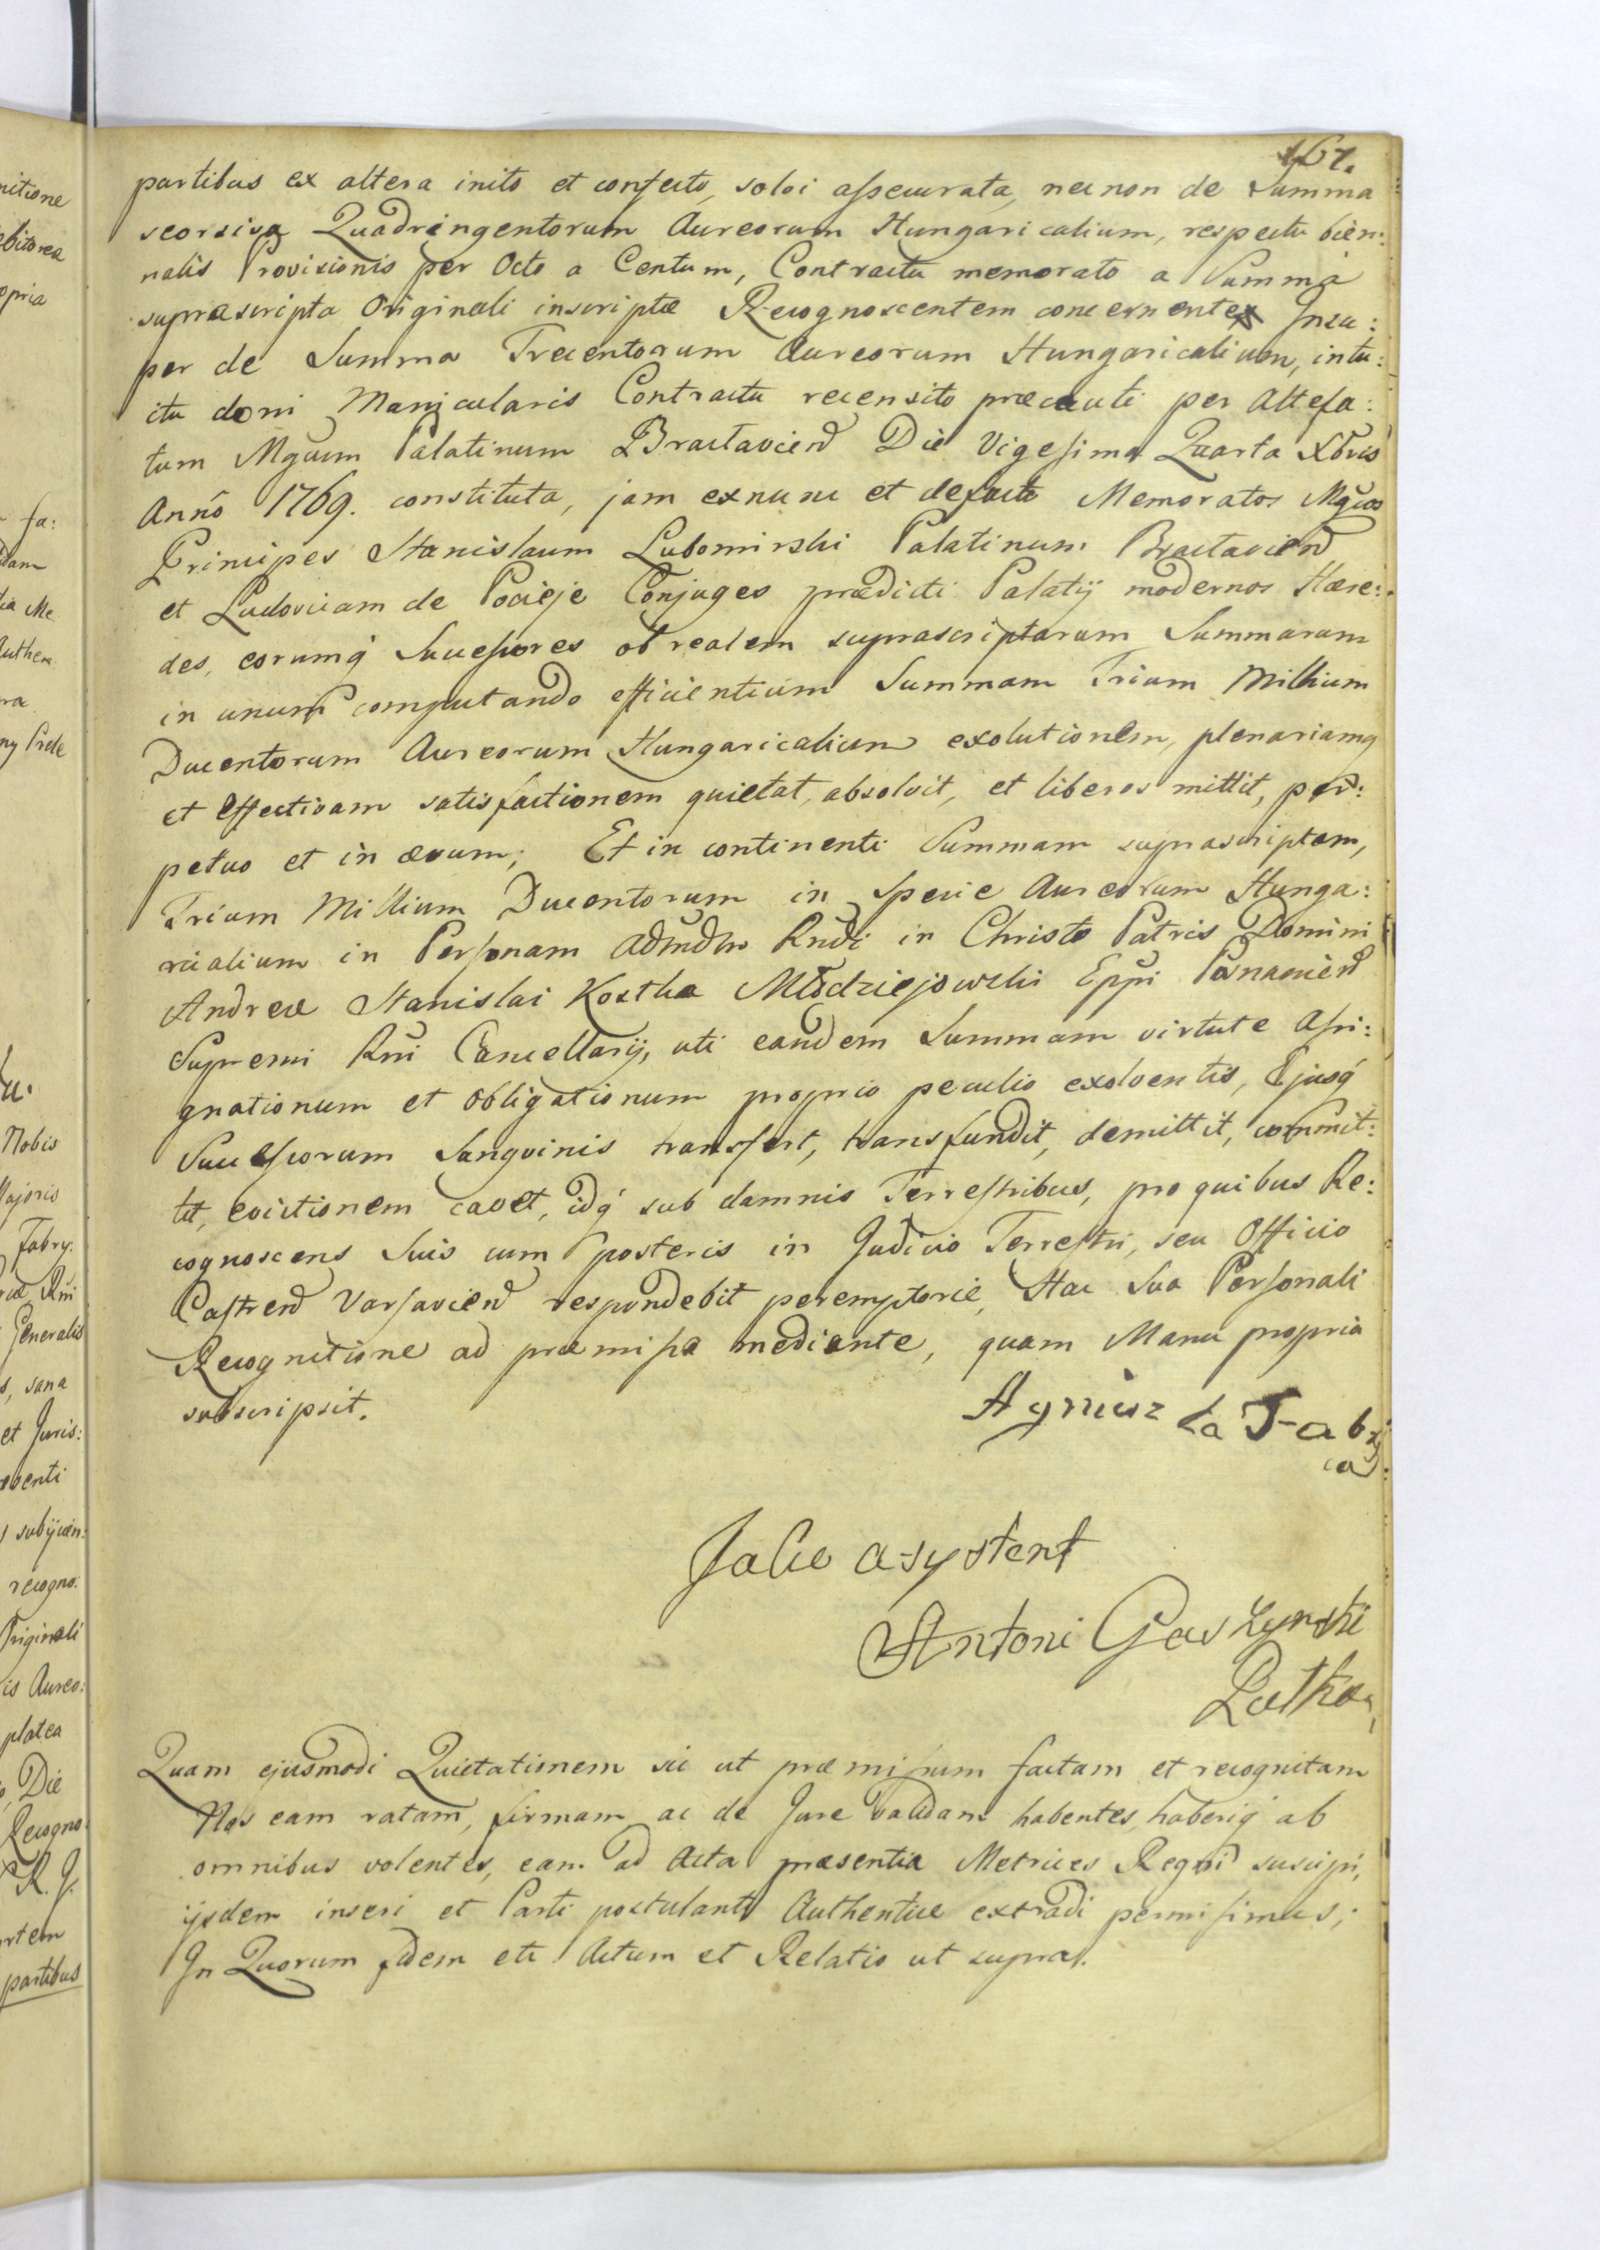 167.
partibus ex altera inito et confecto, solvi assecurata, nec non de Summa
seorsiva Quadringentorum Aureorum Hungaricalium, respectu bien:
nalis Provisionis per Octo a Centum, Contractu memorato a Summa
suprascripta Originali inscriptæ Recognoscentem concernentes Insu:
per de Summa Trecentorum Aureorum Hungaricalium, intu:
itu doni Manicularis Contractu recensito præcauti per Altefa:
tum Mgcum Palatinum Braclavien Die Vigesima Quarta Xbris
Anno 1769. constituta, jam exnunc et defacto Memoratos Mgcos
Principes Stanislaum Lubomirski Palatinum Braclavien
et Ludovicam de Pocieje Conjuges prædicti Palatij modernos Hære:
des, eorumq Successores ob realem suprascriptarum Summarum
in unum computando efficientium Summam Trium Millium
Ducentorum Aureorum Hungaricalium exolutionem, plenariamq
et effectivam satisfactionem quietat, absolvit, et liberos mittit, per:
petuo et in ævum; Et in continenti Summam suprascriptam,
Trium Millium Ducentorum in Specie Aureorum Hunga:
ricalium in Personam Adm Rndi in Christo Patris Domini
Andreæ Stanislai Kostka Młodziejowski Eppi Posnanien
Supremi Rni Cancellarij, uti eandem Summam virtute Assi:
gnationum et Obligationum proprio peculio exolventis, Ejusq
Successorum Sanguinis transfert, transfundit, demittit, commit:
tit, evictionem cavet, idq sub damnis Terrestribus, pro quibus Re:
cognoscens Suis cum posteris in Judicio Terrestri, seu Officio
Castren Varsavien respondebit peremptorie, Hac Sua Personali
Recognitione ad præmissa mediante, quam Manu propria
subscripsit.
Agniesz ka Fabry
ca
Jako asystent
Antoni Gaszynski
Quam ejusmodi Quietationem sic ut præmissum factam et recognitam
Nos eam ratam, firmam ac de Jure validam habentes, haberiq ab
omnibus volentes, eam ad Acta præsentia Metrices Regni suscipi,
ijsdem inseri et Parti postulanti Authentice extradi permisimus;
In Quorum fidem etc Actum et Relatio ut supra.